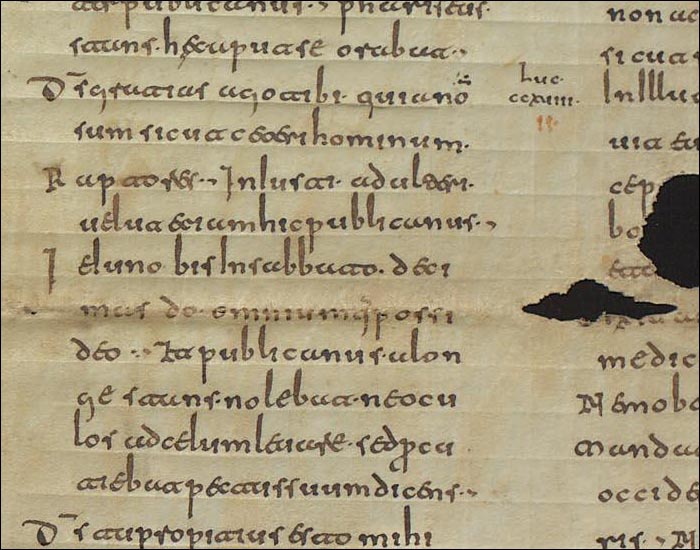 publicanus phariseus.
stans. hec aput se orabat.
D̄s gratias ago tibi. quia nō
sum sicut ceteri hominum.
Raptores. Iniusti. adulteri.
uelut etiam hic publicanus.
Ieiuno bis In sabbato. deci
mas do omnium possi
deo. publicanus. alon
ge stans. nolebat. neocu
los ad celum leuare. sed pcu
tiebat pectus suum dicens.
D̄s propitius esto mihi
luc.
ccxiiii.
II.
non
sicut
In Illu
cep
bo
medic
Nemo b
occide
ris.